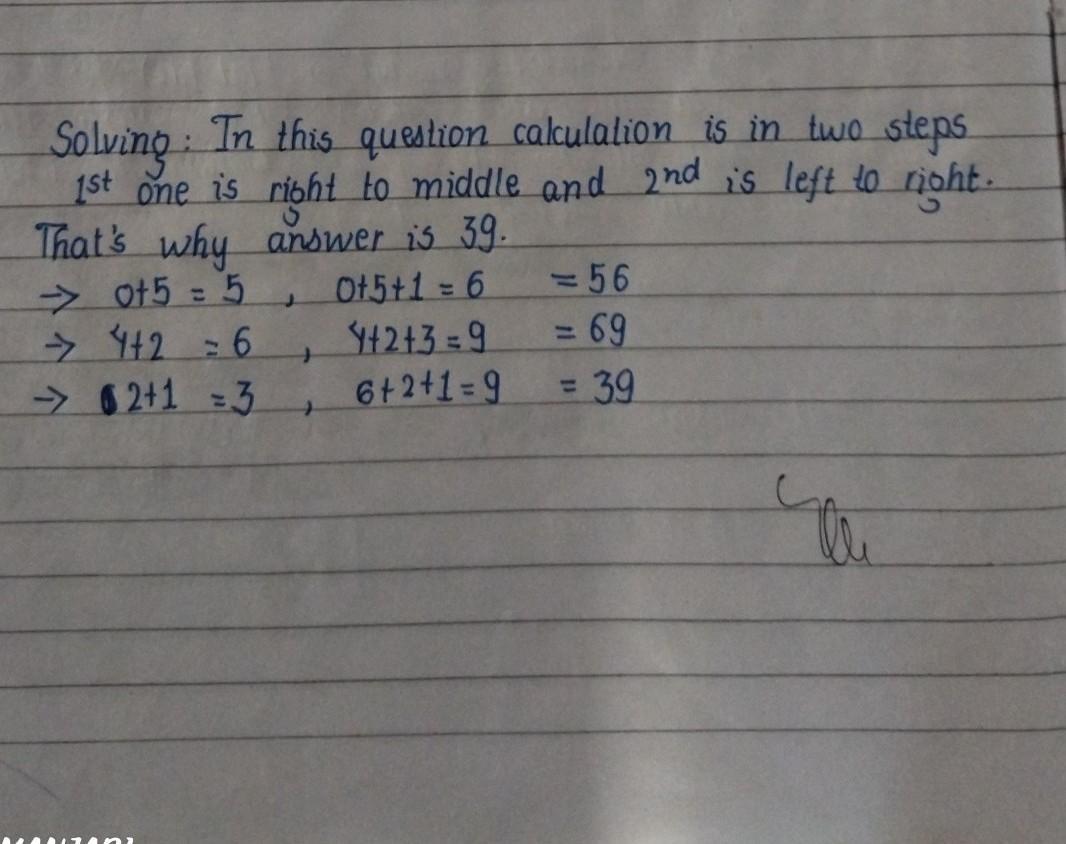 Solving: In this question calculation is in two steps
1st one is right to middle and 2nd is left to right.
That's why answer is 39.
→ 0+5 = 5 , 0+5+1 = 6 = 56
→ 4+2 = 6 , 4+2+3 = 9 = 69
→ 2+1 = 3 , 6+2+1 = 9 = 39